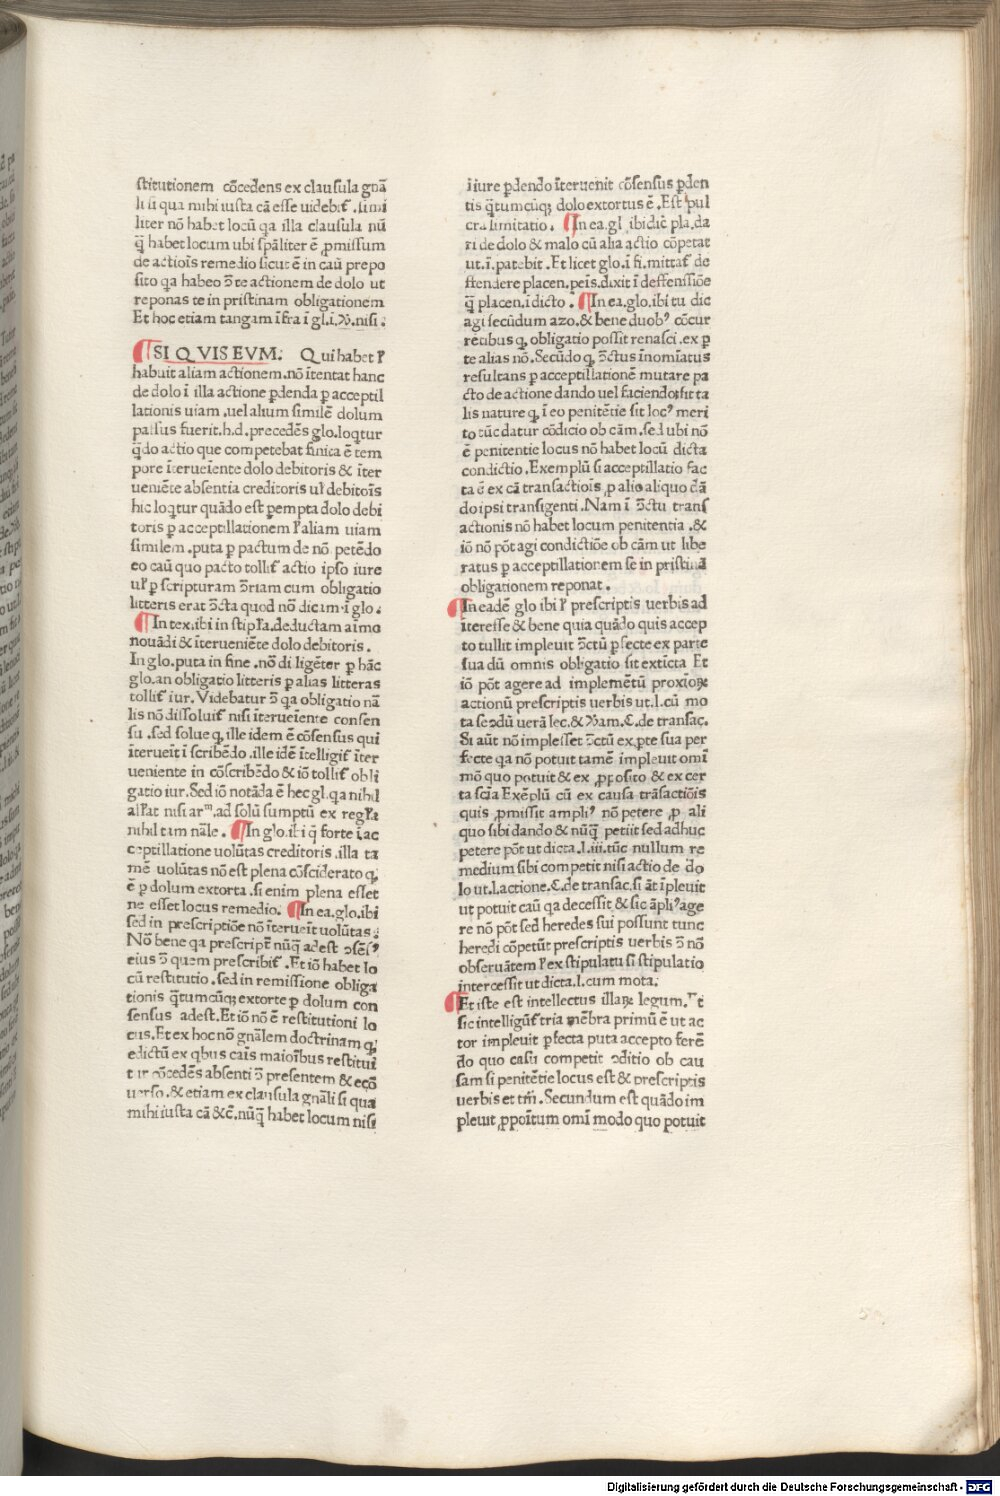 stitutionem cōcedens ex clausula gnā
li si qua mihi iusta cā esse uidebit̄ . simi
liter nō habet locū qa illa clausula nū
q̄ habet locum ubi spāliter ē ꝓmissum
de actiois remedio sicut ē in caū prepo
sito qa habeo ꝯ te actionem de dolo ut
reponas te in pristinam obligationem
Et hoc etiam tangam īfra ī gl. nisi .
¶ SI QVIS EVM. Qui habet ł
habuit aliam actionem .nō ītentat hanc
de dolo ī illa actione ꝑdenda ꝑ acceptil
lationis uiam .uel alium similē dolum
passus fuerit.h.d.precedēs glo.loqtur
q̄do actio que competebat finica ē tem
pore īterueiente dolo debitoris & īter
ueniēte absentia creditoris ul̄ debitoīs
hic loqtur quādo est ꝑempta dolo debi
toris ꝑ acceptillationem ł aliam uiam
similem .puta ꝑ pactum de nō petēdo
eo caū quo pacto tollit̄ actio ipso iure
ul̄ ꝑ scripturam ꝯriam cum obligatio
litteris erat ꝯcta quod nō dicam ī glo .
¶ In tex.ibi in stipl̄a.deductam aīmo
nouādi & īterueniēte dolo debitoris .
In glo.puta in fine .nō diligēter ꝑ hāc
glo.an obligatio litteris ꝑ alias litteras
tollit̄ iur. Videbatur ꝯ qa obligatio nā
lis nō dissoluit̄ nisi īterueīente consen
su .sed solue q, ille idem ē cōsensus qui
īterueīt ī scribēdo .ille idē ītelligit̄ īter
ueniente in cōscribēdo & iō tollit̄ obli
gatio iur. Sed iō notāda ē hec gl. qa nihil
al̄l̄at nisi arᵐ.ad solū sumptū ex regl̄a
nihil tam nāle . ¶ In glo.ibi q̄ forte ī ac
ceptillatione uolūtas creditoris .illa ta
mē uolūtas nō est plena cōsciderato q,
ē ꝑ dolum extorta .si enim plena esset
ne esset locus remedio. ¶ In ea.glo.ibi
sed in prescriptiōe nō īterueīt uolūtas ;
Nō bene qa prescripēr nūq̄ adest ↄsēsꝰ
eius ꝯ quem prescribit̄ . Et iō habet lo
cū restitutio .sed in remissione obliga
tionis q̄tumcūqꝫ extorte ꝑ dolum con
sensus adest. Et iō nō ē restitutioni lo
cus. Et ex hoc nō gnālem doctrinam q,
edictū ex qbus cais maioībus restituī
tur cōcedēs absenti ꝯ presentem & ecō
uerso .& etiam ex clausula gnāli si qua
mihi iusta cā &c̄. nūq̄ habet locum nisi
ī iure ꝑdendo īteruenit cōsensus ꝑden
tis q̄tumcūqꝫ dolo extortus ē . Est pul
cra limitatio . ¶ In ea.gl ibi dic̄ pla. da
ri de dolo & malo cū alia actio cōpetat
ut.ī.patebit . Et licet glo.ī fi.mittat̄ de
ffendere placen.peis.dixit ī deffensiōe
q̄ placen.ī dicto . ¶ In ea.glo.ibi tu dic
agi secūdum azo. & bene duobꝰ cōcur
retibus q, obligatio possit renasci .ex ꝑ
te alias nō. Secūdo q, ꝯctus īnomīatus
resultans ꝑ acceptillationē mutare pa
cto de actione dando uel faciendo:sit ta
lis nature q, ī eo penitētie sit locꝰ meri
to tūc datur cōdicio ob cām .sed ubi nō
ē penitentie locus nō habet locū dicta
condictio . Exemplū si acceptillatio fac
ta ē ex cā transactiois ꝓ alio aliquo dā
do ipsi transigenti . Nam ī ꝯctu trans
actionis nō habet locum penitentia .&
iō nō pōt agi condictiōe ob cām ut libe
ratus ꝑ acceptillationem se in pristinā
obligationem reponat .
¶ In eadē glo ibi ł prescriptis uerbis ad
īteresse & bene quia quādo quis accep
to tullit impleuit ꝯctū ꝑfecte ex parte
sua dū omnis obligatio sit extīcta Et
iō pōt agere ad implemētū proxioꝝ
actionū prescriptis uerbis ut.l.cū mo
ta secdū uerā lec. de transac.
Si aūt nō implesset ꝯctū ex ꝑte sua per
fecte qa nō potuit tamē impleuit omī
mō quo potuit & ex ꝓposito & ex cer
ta scīa Exēplū cū ex causa trāsactiōis
quis ꝓmissit ampliꝰ nō petere ꝓ ali
quo sibi dando & nūq̄ petiit sed adhuc
petere pōt ut dicta .l.iii.tūc nullum re
medium sibi competit nisi actio de do
lo ut.l.actione.C.de transac.si āt īpleuit
ut potuit caū qa decessit & sic āpliꝰ age
re nō pōt sed heredes sui possunt tunc
heredi cōpetūt prescriptis uerbis ꝯ nō
obseruātem ł ex stipulatu si stipulatio
intercessit ut dicta.l.cum mota:
¶ Et iste est intellectus illaꝝ legum. Et
sic intelligūt̄ tria mēbra primū ē ut ac
tor impleuit ꝑfecta puta accepto ferē
do quo casu competit ↄditio ob cau
sam si penitētie locus est & prescriptis
uerbis et tm̄. Secundum est quādo im
pleuit ꝓpoītum omī modo quo potuit
Digitalisierung gefördert durch die Deutsche Forschungsgemeinschaft - DFG